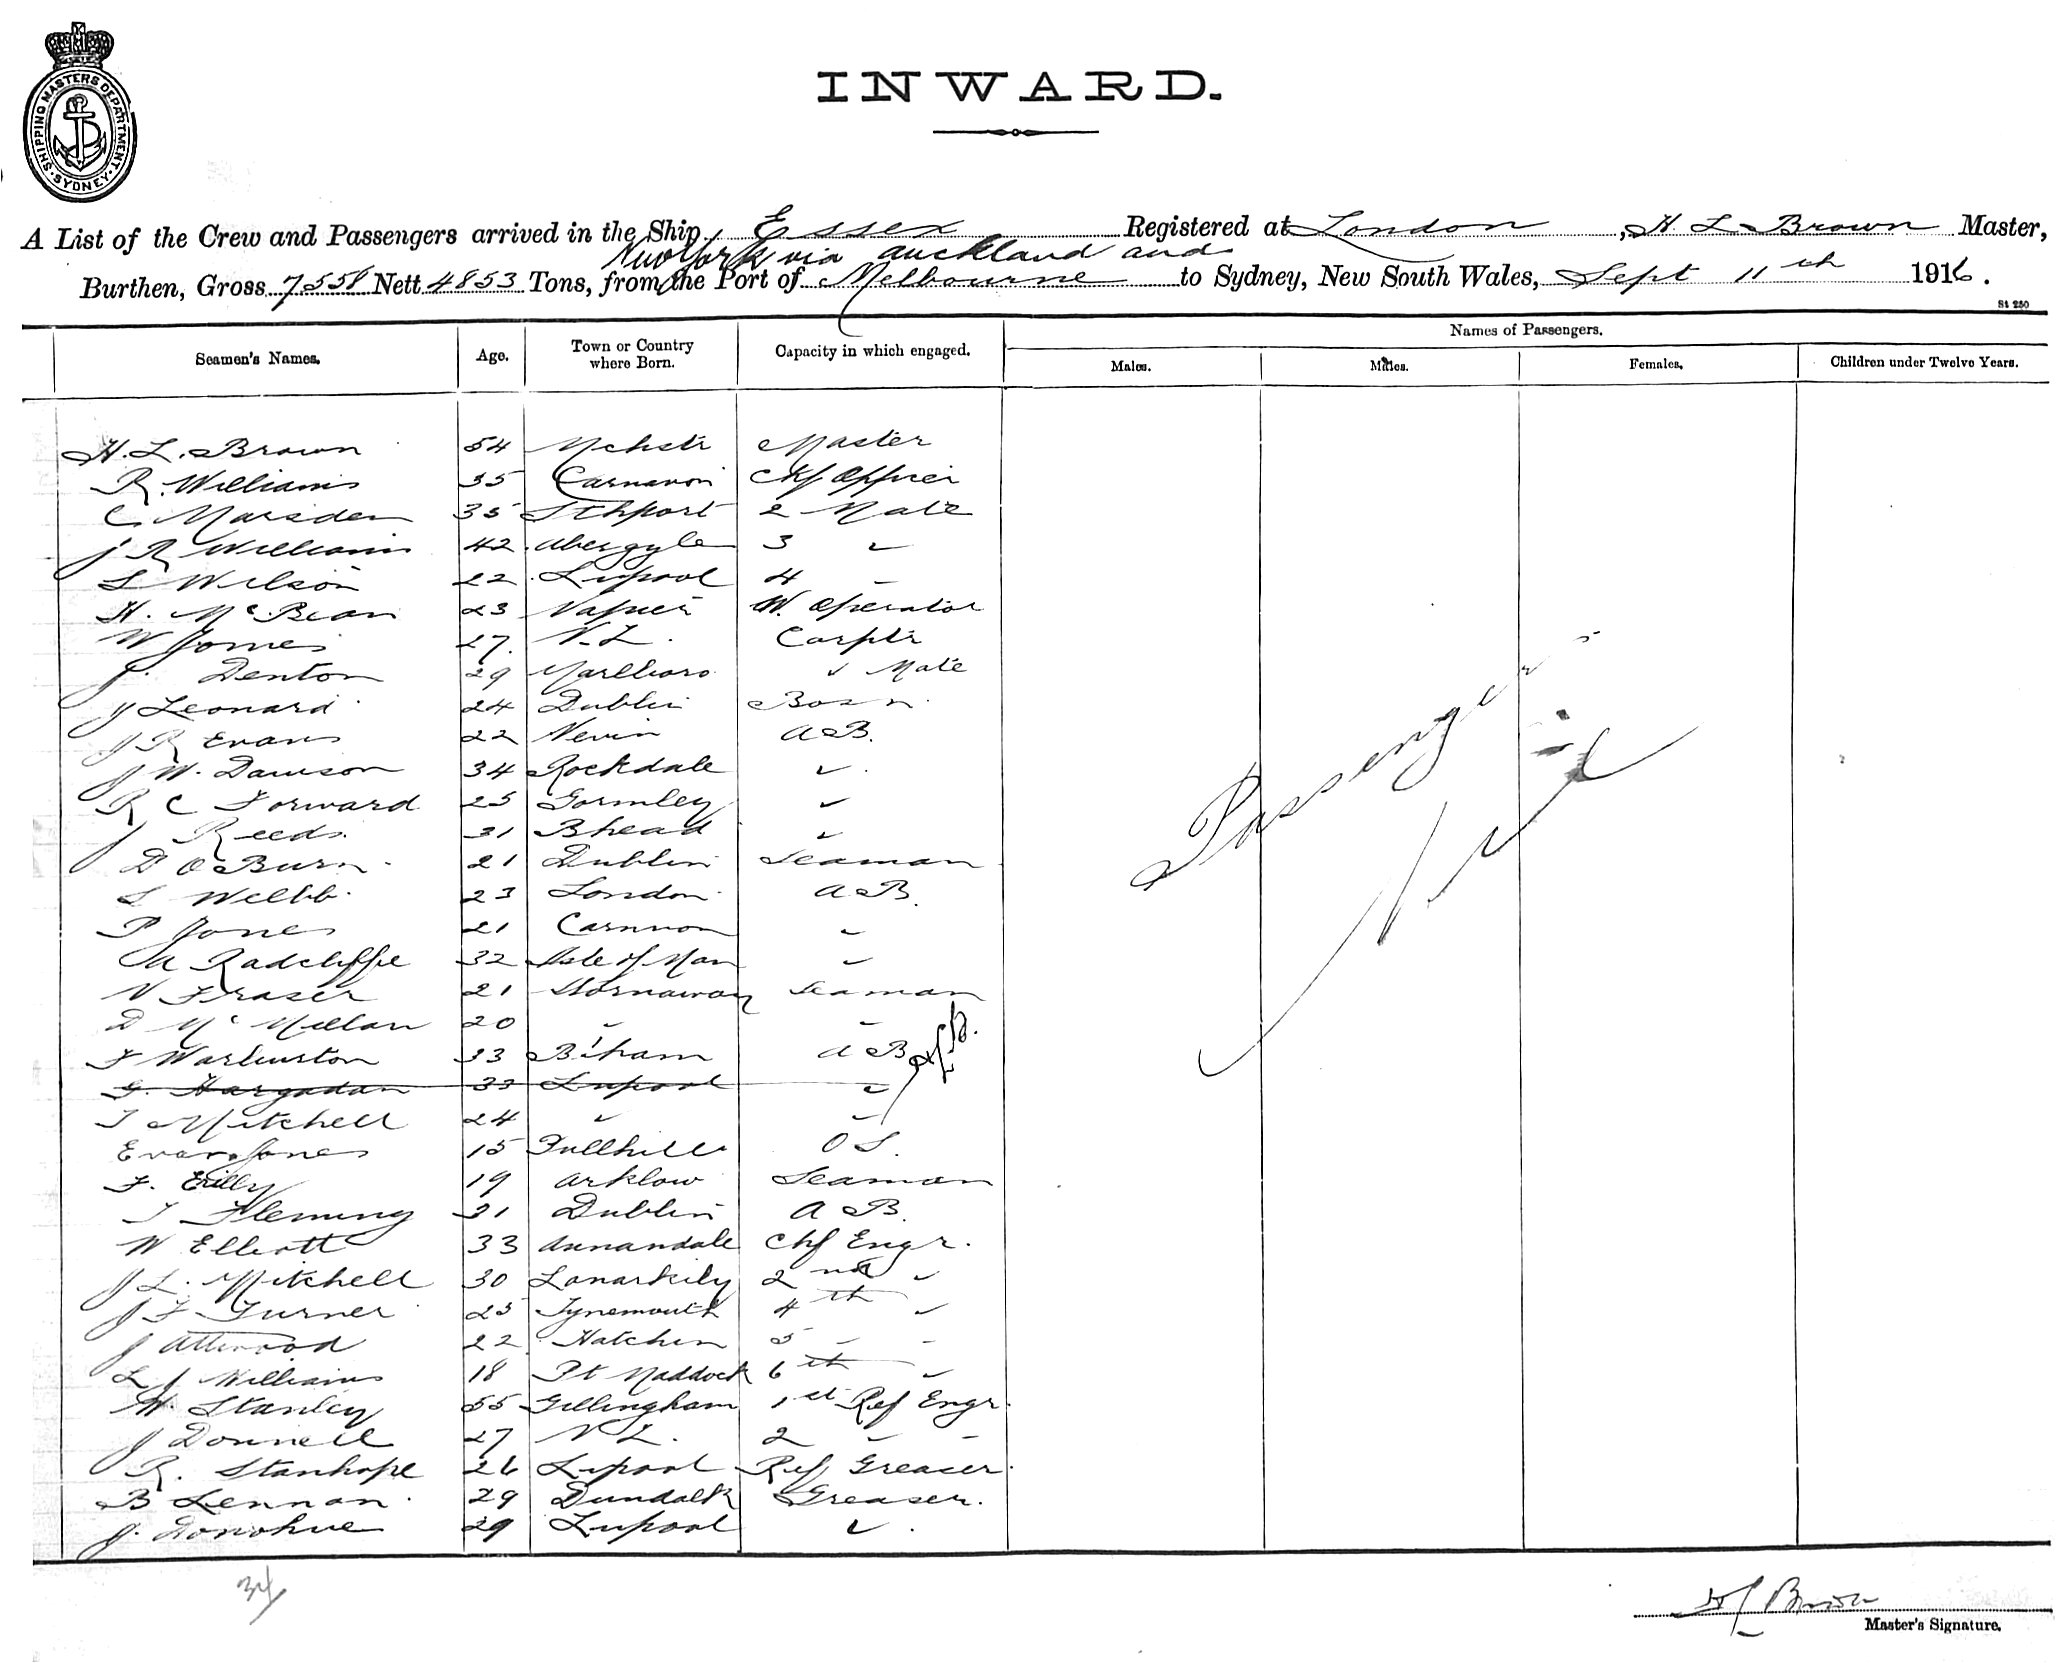 SHIPPING MASTERS DEPARTMENT. SYDNEY.
INWARD.
A List of the Crew and Passengers arrived in the Ship Essex Registered at London, H. L. Brown Master,
New York via Auckland and
Burthen, Gross 7558 Nett 4853 Tons, from the Port of Melbourne to Sydney, New South Wales, Sept 11th 1916.
St 250
Names of Passengers.
Seamen's Names. Age. Town or Country where Born. Capacity in which engaged. Males. Males. Females. Children under Twelve Years.
H. L. Brown 54 Mchstr Master
R. Williams 35 Carnavon Chf Officer
C Marsden 35 Sthport 2 Mate
J R Williams 42 Abergyle 3 "
S Wilson 22 Lipool 4 "
H. McBean 23 Napier W. Operator
W Jones 27. N.Z. Carptr
J. Denton 29 Marlboro " Mate
J Leonard 24 Dublin Bosn.
J R Evans 22 Nevin AB.
J W. Dawson 34 Rockdale "
R C Forward 25 Gormley "
J Reeds 31 Bhead "
D O Burn 21 Dublin Seaman
S Webb 23 London AB.
P Jones 21 Carnvon "
A Radcliffe 32 Isle of Man "
N Fraser 21 Stornaway Seaman
D McMillan 20 " "
F Warburton 33 B'ham AB
G. Hargadan 33 Lipool "
T Mitchell 24 " "
Evan Jones 15 OS.
F. Eilly 19 Arklow Seaman
T Fleming 31 Dublin AB.
W Elliott 33 Annandale Chf Engr.
J L. Mitchell 30 2nd "
J F Turner 25 Tynemouth 4th "
J Attwood 22 Hatchen 5 " "
L J Williams 18 Pt Maddock 6th "
W. Stanley 55 Gillingham 1st Ref Engr.
J Donnell 27 N Z. 2 " "
R. Stanhope 26 Lipool Ref Greaser
B Lennan 29 Dundalk Greaser.
J. Donohue 29 Lipool "
Passengers
Nil
34
H L Brown
Master's Signature.